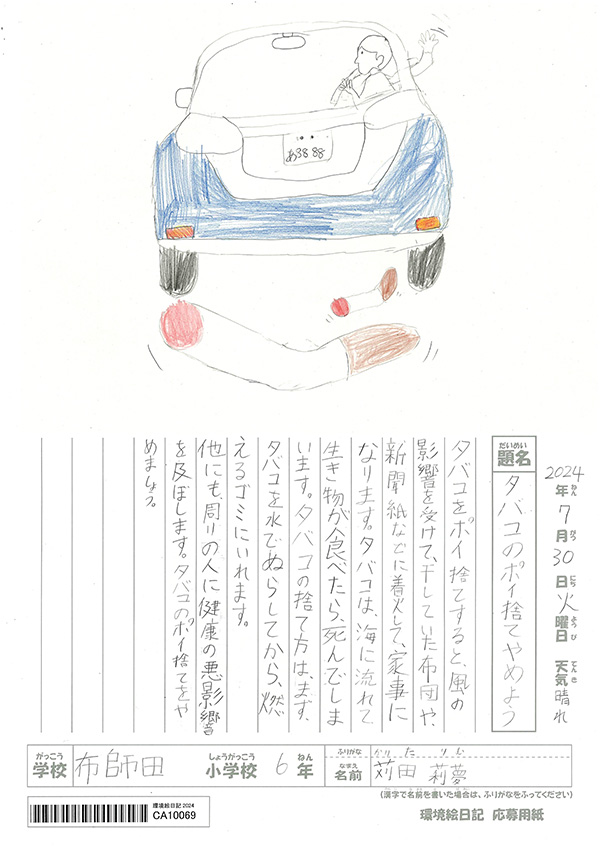 あ3888
2024年7月30日火曜日 天気晴れ
ねん がつ にち ようび てんき
だいめい
題名 タバコのポイ捨てやめよう
タバコをポイ捨てすると、風の
影響を受けて、干していた布団や、
新聞紙などに着火して、家事に
なります。タバコは、海に流れて
生き物が食べたら、死んでしま
います。タバコの捨て方は、まず、
タバコを水でぬらしてから、燃
えるゴミにいれます。
他にも、周りの人に健康の悪影響
を及ぼします。タバコのポイ捨てをや
めましょう。
がっこう しょうがっこう ねん ふりがな かりたりむ
学校 布師田 小学校 6年 なまえ 名前 苅田 莉夢
(漢字で名前を書いた場合は、ふりがなをふってください)
環境絵日記 2024
CA10069
環境絵日記 応募用紙